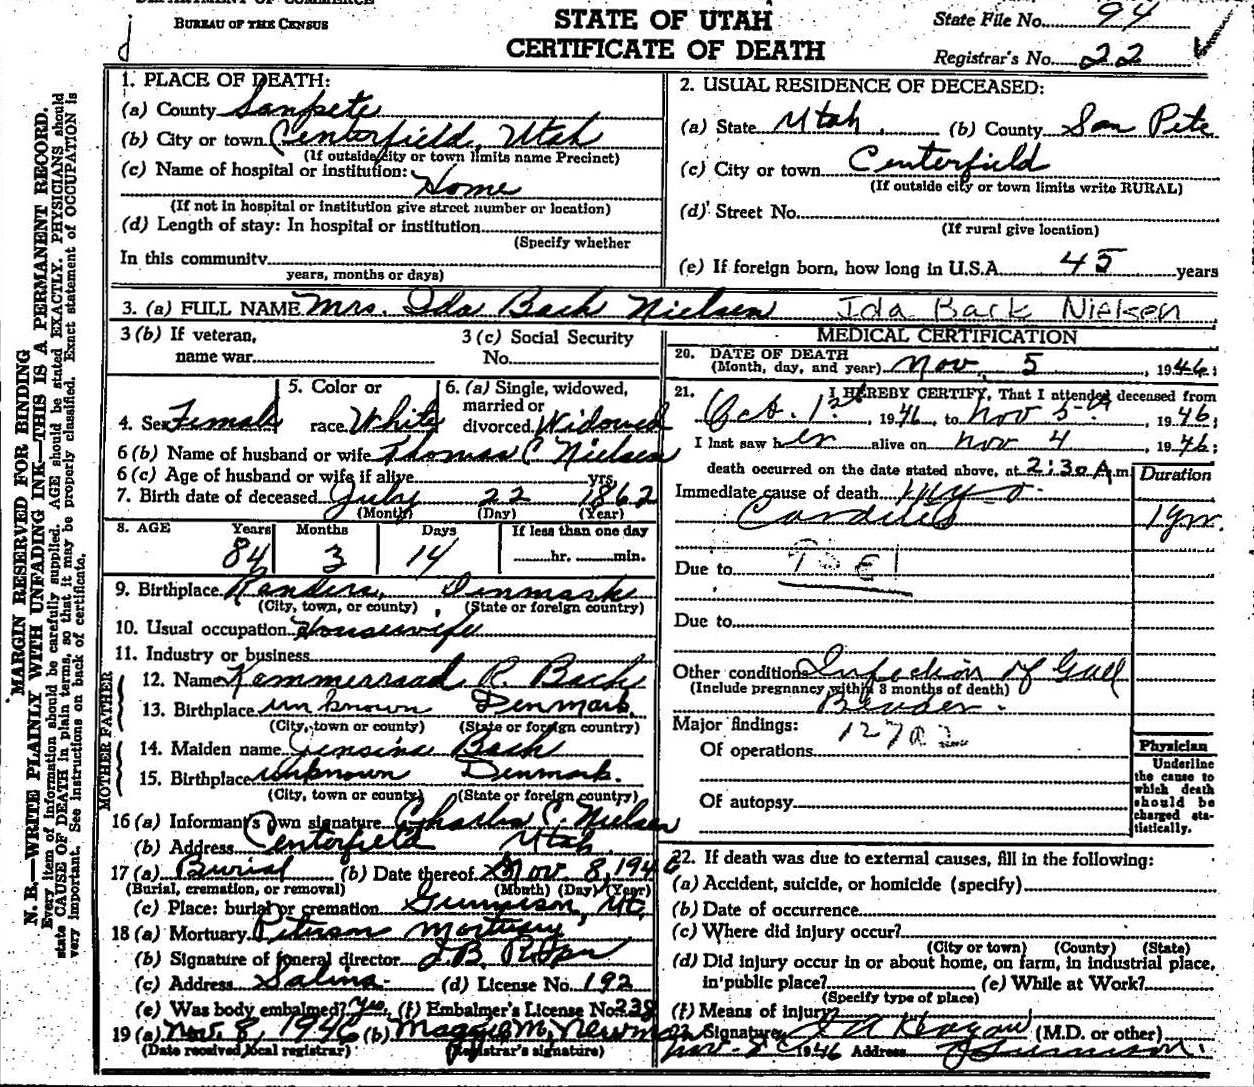 DEPARTMENT OF COMMERCE
BUREAU OF THE CENSUS
STATE OF UTAH
CERTIFICATE OF DEATH
State File No. 94
Registrar's No. 22
MARGIN RESERVED FOR BINDING
N. B.—WRITE PLAINLY WITH UNFADING INK—THIS IS A PERMANENT RECORD.
Every item of information should be carefully supplied. AGE should be stated EXACTLY. PHYSICIANS should
state CAUSE OF DEATH in plain terms, so that it may be properly classified. Exact statement of OCCUPATION is
very important. See instructions on back of certificate.
1. PLACE OF DEATH:
(a) County Sanpete
(b) City or town Centerfield, Utah
(If outside city or town limits name Precinct)
(c) Name of hospital or institution:
Home
(If not in hospital or institution give street number or location)
(d) Length of stay: In hospital or institution
(Specify whether
In this community
years, months or days)
2. USUAL RESIDENCE OF DECEASED:
(a) State Utah (b) County San Pete
(c) City or town Centerfield
(If outside city or town limits write RURAL)
(d) Street No.
(If rural give location)
(e) If foreign born, how long in U.S.A. 45 years
3. (a) FULL NAME Mrs. Ida Bach Nielsen Ida Back Nielsen
3 (b) If veteran,
name war
3 (c) Social Security
No.
4. Sex Female
5. Color or
race White
6. (a) Single, widowed,
married or
divorced Widowed
6 (b) Name of husband or wife Thomas C Nielsen
6 (c) Age of husband or wife if alive yrs.
7. Birth date of deceased July 22 1862
(Month) (Day) (Year)
8. AGE Years Months Days If less than one day
84 3 14 hr. min.
9. Birthplace Randers, Denmark
(City, town, or county) (State or foreign country)
10. Usual occupation Housewife
11. Industry or business
FATHER
12. Name Kammerraad R. Bach
13. Birthplace unknown Denmark
(City, town or county) (State or foreign country)
MOTHER
14. Maiden name Jensine Bach
15. Birthplace unknown Denmark.
(City, town or county) (State or foreign country)
16 (a) Informant's own signature Charles C. Nielsen
(b) Address Centerfield Utah
17 (a) Burial (b) Date thereof Nov. 8, 1946
(Burial, cremation, or removal) (Month) (Day) (Year)
(c) Place: burial or cremation Gunnison, Ut.
18 (a) Mortuary Peterson Mortuary
(b) Signature of funeral director
(c) Address Salina. (d) License No. 192
(e) Was body embalmed? Yes. (f) Embalmer's License No. 238
19 (a) Nov. 8, 1946 (b) Maggie M. Newman
(Date received local registrar) (Registrar's signature)
MEDICAL CERTIFICATION
20. DATE OF DEATH
(Month, day, and year) Nov. 5, 1946;
21. I HEREBY CERTIFY, That I attended deceased from
Oct. 1st, 1946, to Nov 5th, 1946;
I last saw her alive on Nov 4, 1946;
death occurred on the date stated above, at 2:30 A.m.
Duration
Immediate cause of death Myo-
Carditis 1 yr.
Due to
Due to
Other conditions Infection of Gall
(Include pregnancy within 3 months of death)
Bladder.
Major findings:
Of operations
Of autopsy
Physician
Underline
the cause to
which death
should be
charged sta-
tistically.
22. If death was due to external causes, fill in the following:
(a) Accident, suicide, or homicide (specify)
(b) Date of occurrence
(c) Where did injury occur?
(City or town) (County) (State)
(d) Did injury occur in or about home, on farm, in industrial place,
in public place? (e) While at Work?
(Specify type of place)
(f) Means of injury?
23. Signature (M.D. or other)
Nov. 1946 Address Gunnison.